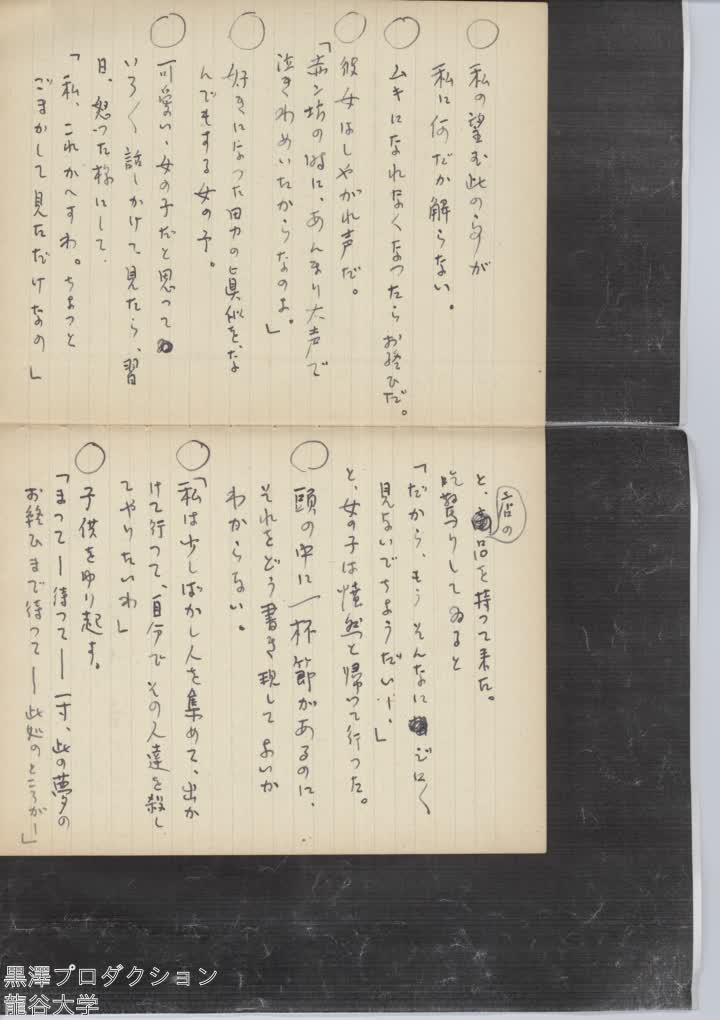 ○ 私の望む此の事が
私に何だか解らない。
○ ムキになれなくなつたらお終ひだ。
○ 彼女はしやがれ声だ。
「赤ン坊の時に、あんまり大声で
泣きわめいたからなのよ。」
○ 好きになつた男の真似を、な
んでもする女の子。
○ 可愛い、女の子だと思つてゐ
いろ〱話しかけて見たら、翌
日、怒つた様にして、
「私、これかへすわ。ちよつと
ごまかして見ただけなの」
と、店の品を持つて来た。
吃驚りしてゐると
「だから、もうそんなにジロ〱
見ないでちようだいよ、」
と、女の子は憤然と帰いて行つた。
○ 頭の中に一杯節があるのに、
それをどう書き現してよいか
わからない。
○ 「私は少しばかし人を集めて、出か
けて行つて、自分でその人達を殺し
てやりたいわ」
○ 子供をゆり起す。
「まつてー待つてー一寸、此の夢の
お終ひまで待つてー此処のところがー」
黒澤プロダクション
龍谷大学